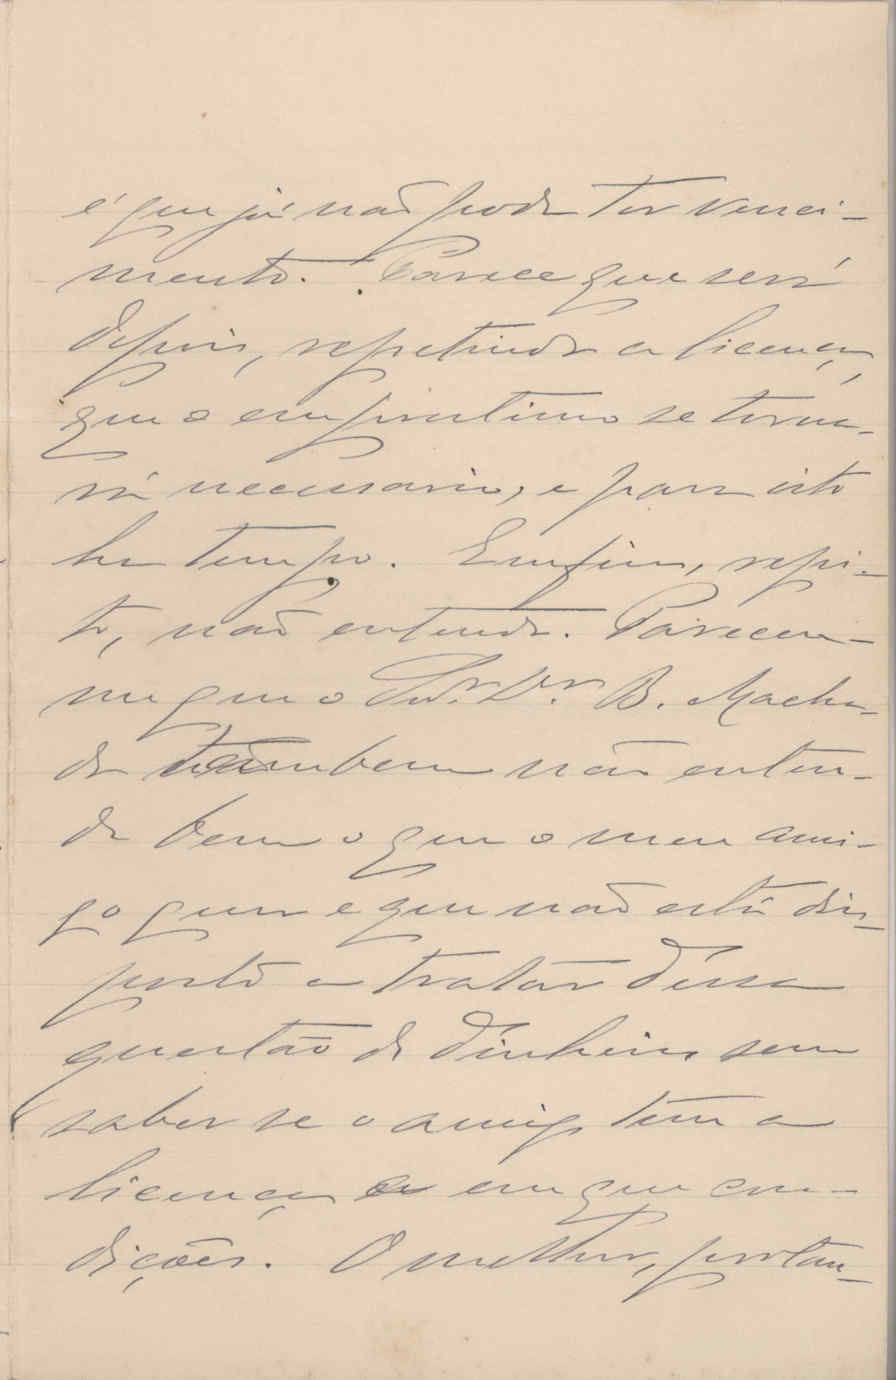 é que já não pode ter venci-
mento. Parece que será
depois, repetindo a licença,
que o emprestimo se torna-
rá necessario, e para isto
ha tempo. Emfim, repi-
to, não entendo. Pareceu-
me que o Snr. Dr. B. Macha-
do tambem não enten-
de bem o que o meu ami-
go quer e que não está dis-
posto a tratar d'essa
questão de dinheiro sem
saber se o amigo tem a
licença e em que con-
dições. O melhor, portan-